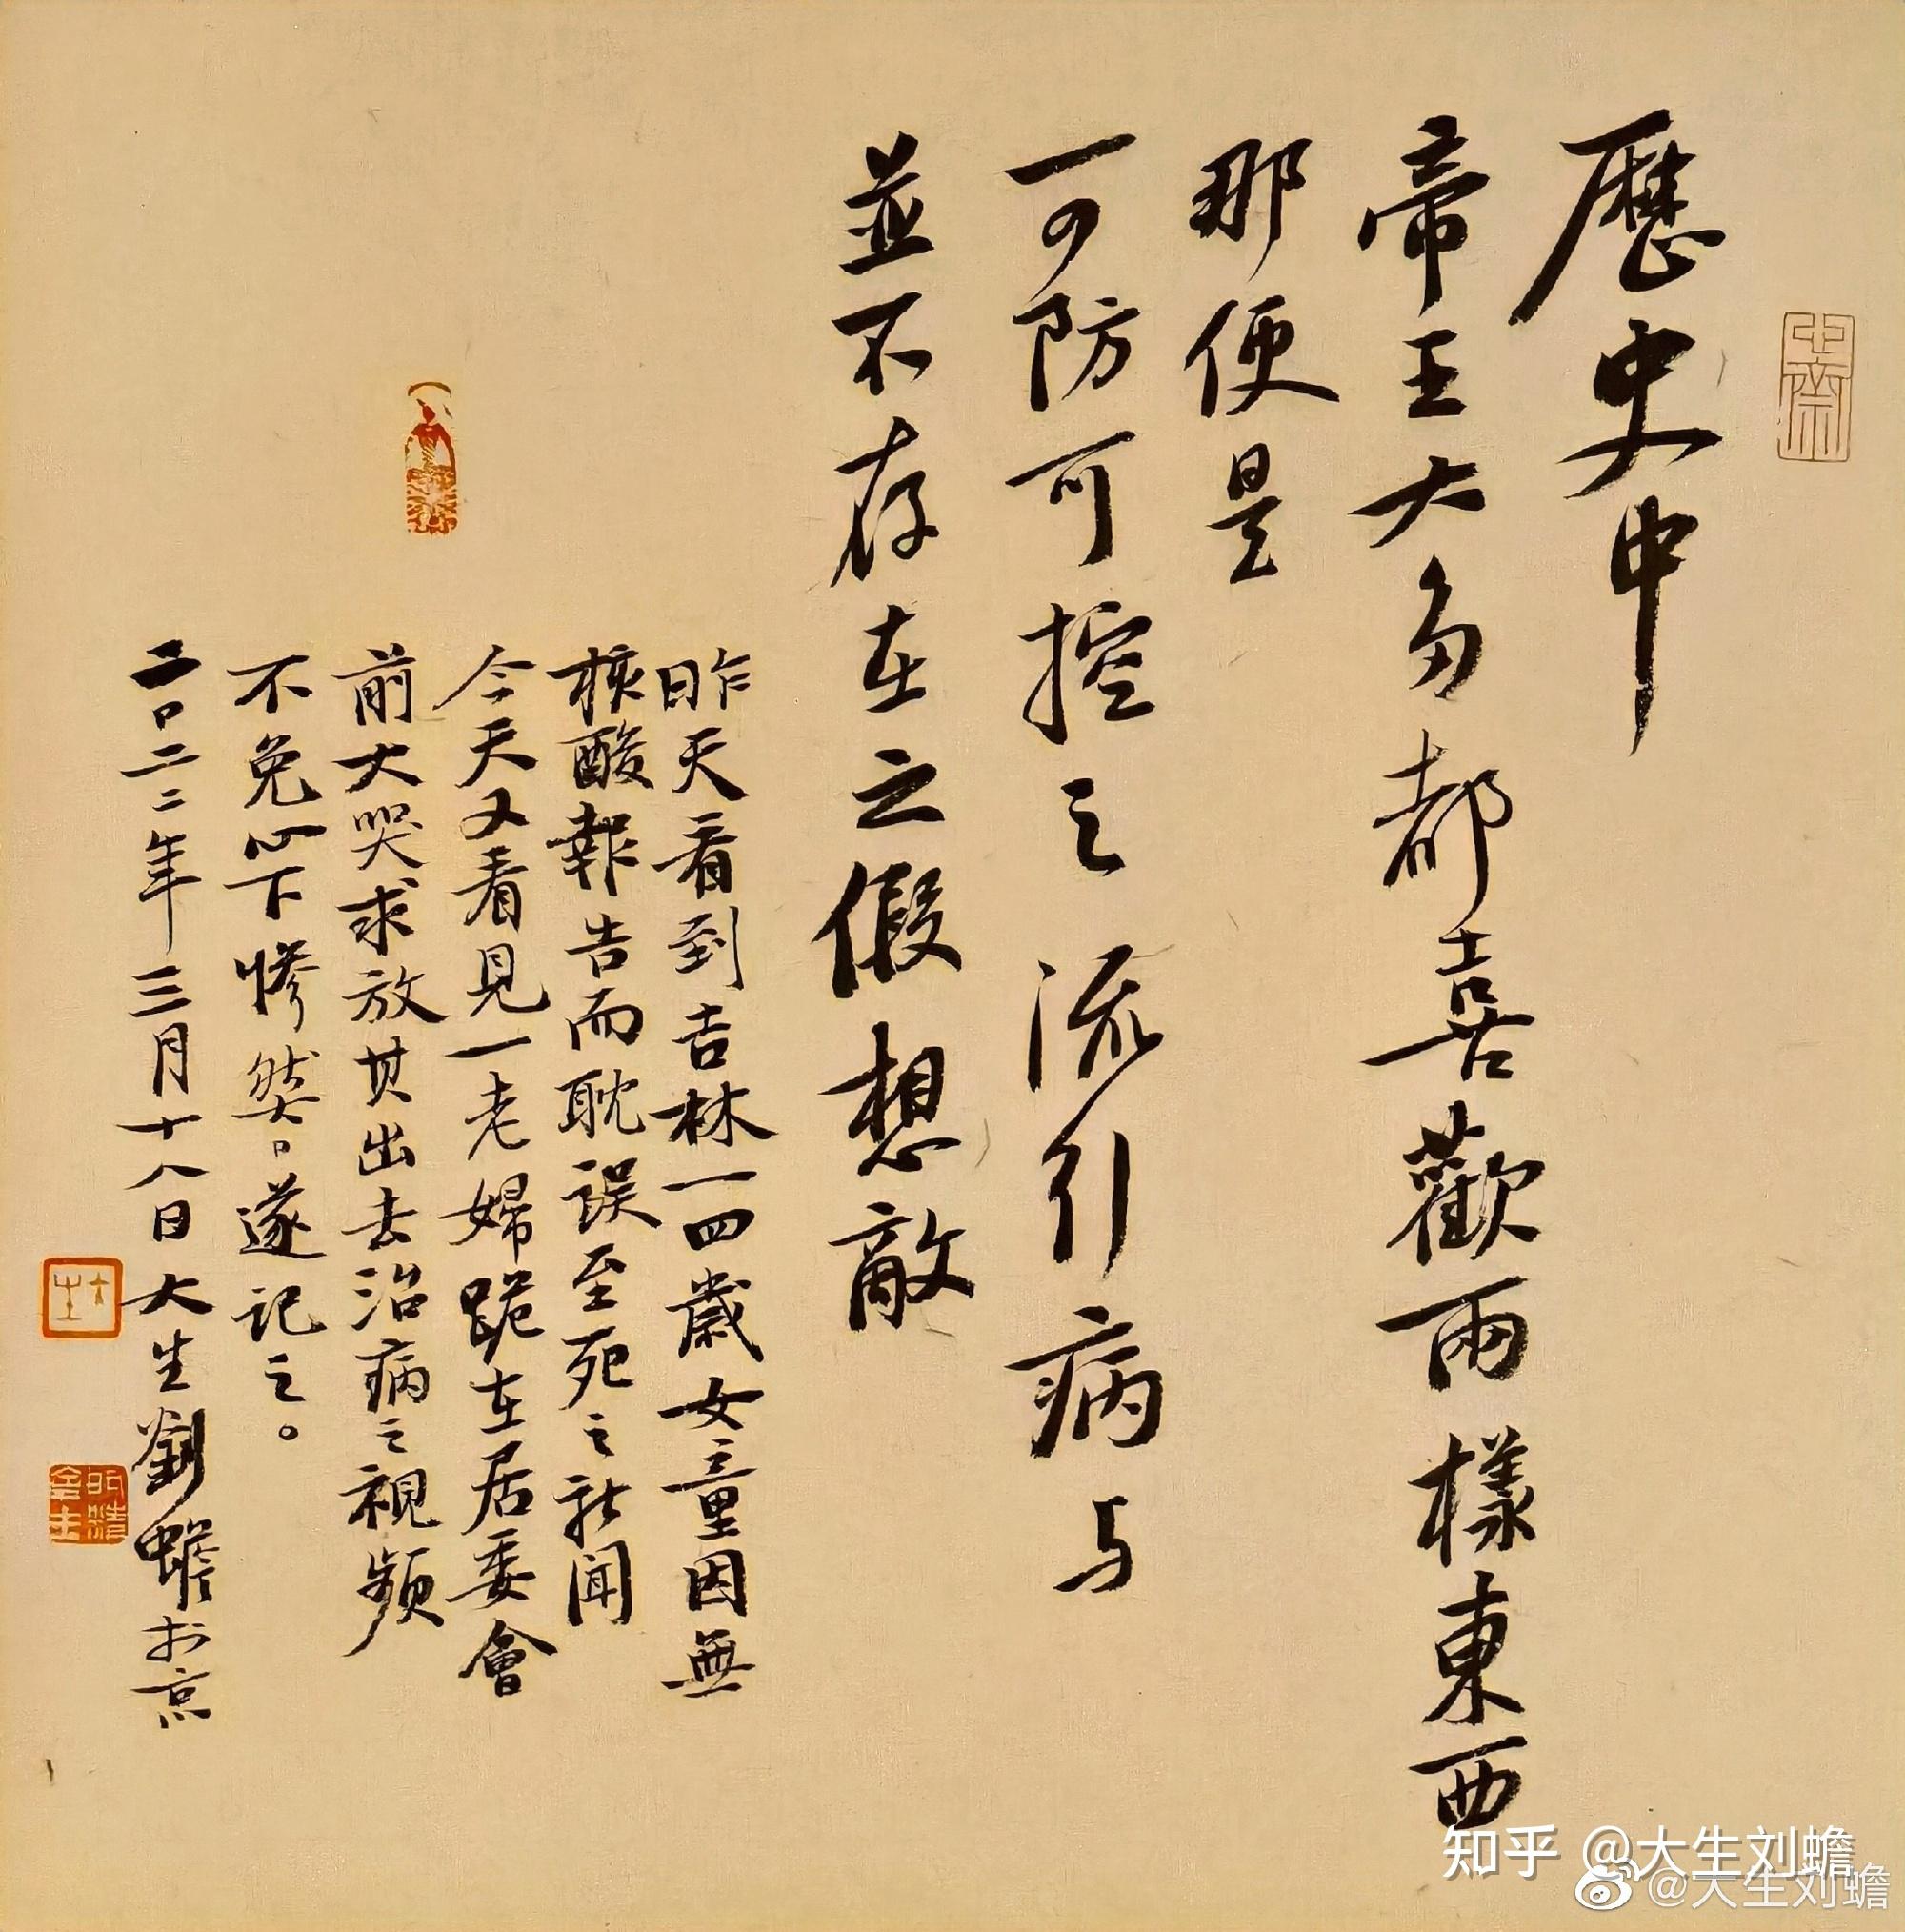 歷史中
帝王大多都喜歡兩樣東西
那便是
可防可控之流引病与
並不存在之假想敵
昨天看到吉林一四歲女童因無
核酸報告而耽误至死之新闻
今天又看見一老婦跪在居委會
前大哭求放其出去治病之視频
不免心下慘然。遂记之。
二〇二二年三月十八日大生劉蟾於京
大生
知乎 @大生刘蟾
@大生刘蟾